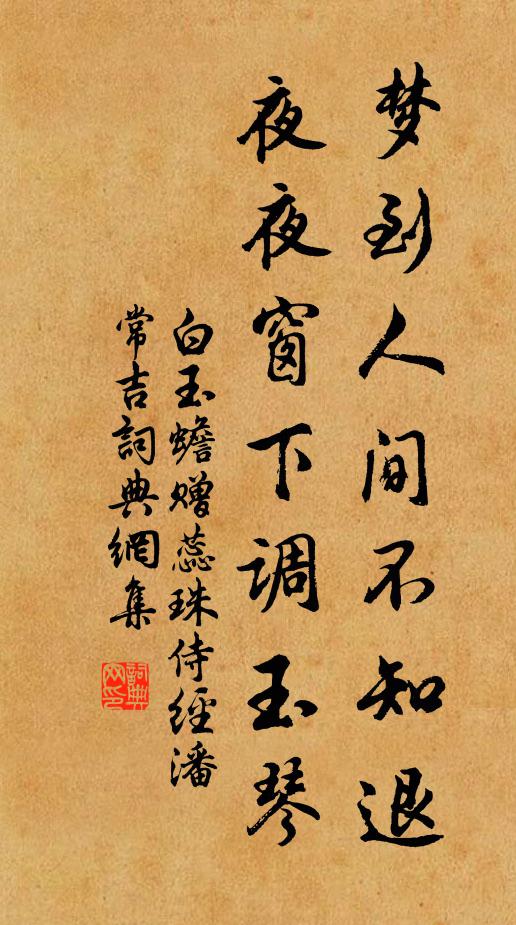 梦到人间不知退
夜夜窗下调玉琴
白玉蟾赠蕊珠侍經潘
常吉詞典網集
詞典网印